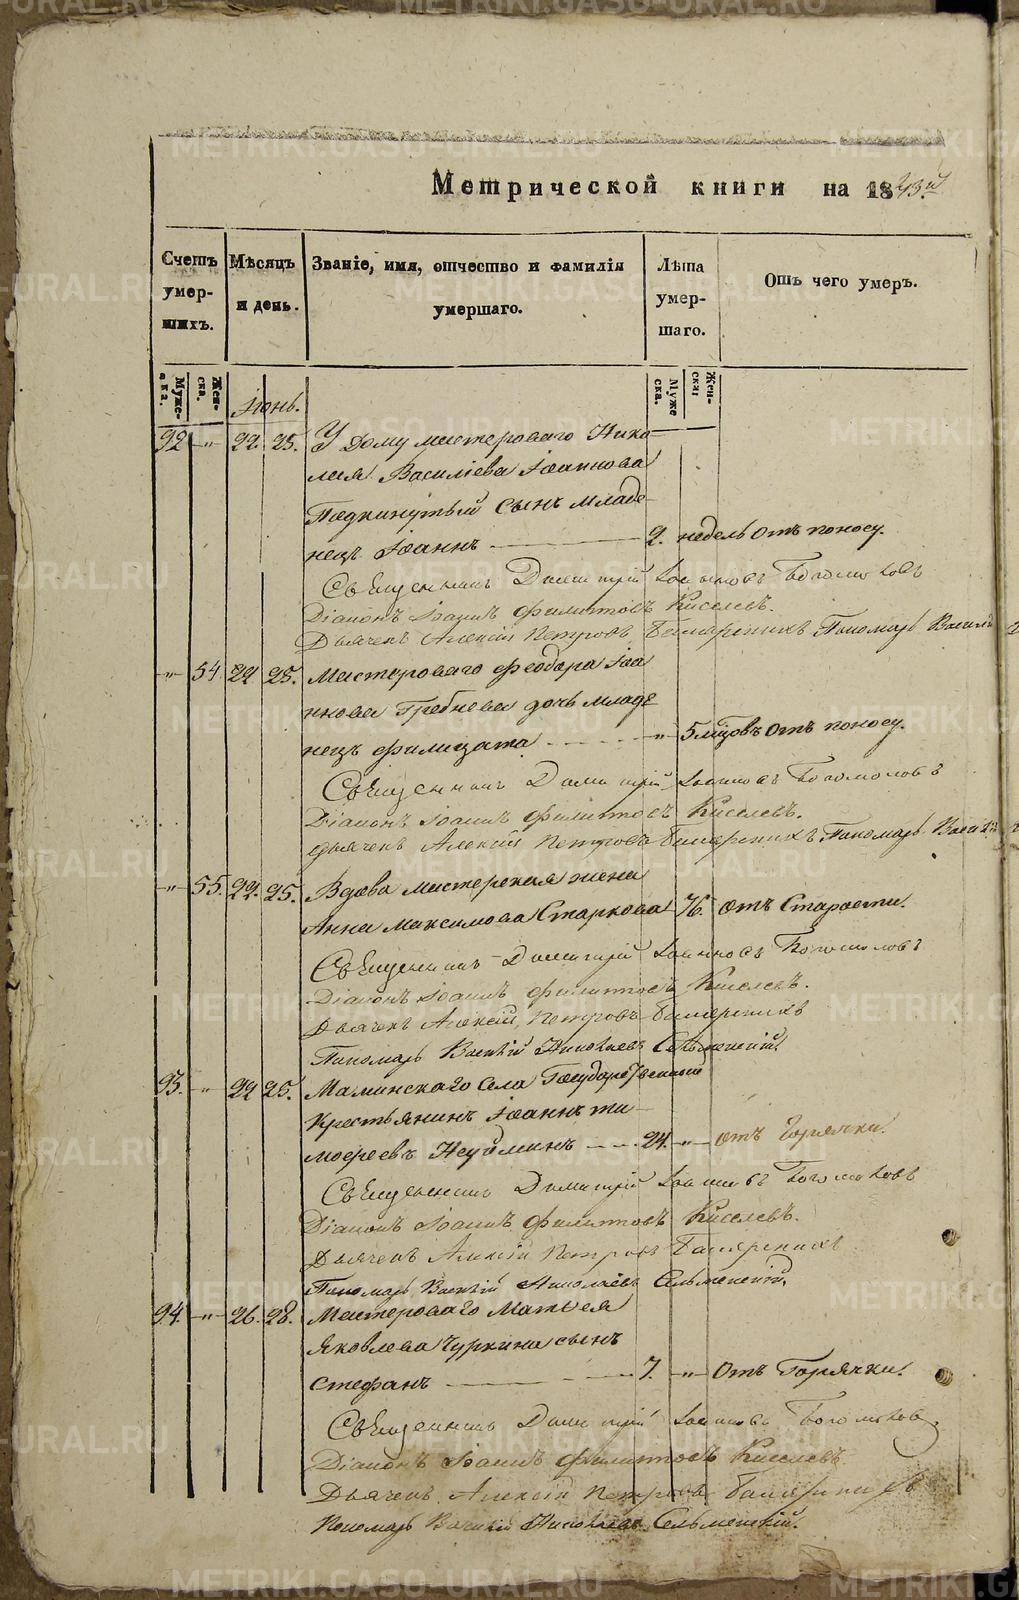 Метрической книги на 1843й
Счетъ умер-шихъ.
Мѣсяцъ и день.
Званіе, имя, отчество и фамилія умершаго.
Лѣта умер-шаго.
Отъ чего умеръ.
Муже-ска. Жен-ска. Муже ска Жен-ска
Іюнь.
92 „ 22. 25. У дому мастероваго Нико-
лая Василіева Іоаннова
Подкинутый сынъ младе-
нецъ Іоаннъ 2. недель отъ поносу.
Священникъ Димитрій Іоанновъ Богомоловъ
Діаконъ Іоаннъ Филиповъ Киселевъ.
Дьячекъ Алексій Петровъ Пономарь Василій
„ 54. 22 25. Мастероваго Феодора Іоа
ннова Гребнева дочь младе
нецъ Филицата „ 5 мцовъ отъ поносу.
Священникъ Димитрій Іоанновъ Богомоловъ
Діаконъ Іоаннъ Филиповъ Киселевъ.
Дьячекъ Алексій Петровъ Пономарь Василій
„ 55. 22. 25. Вдова мастерская жена
Анна Максимова Старкова 76. отъ Старости.
Священникъ Димитрій Іоанновъ Богомоловъ
Діаконъ Іоаннъ Филиповъ Киселевъ.
Дьячекъ Алексій Петровъ
Пономарь Василій Николаевъ Сельменскій.
93. „ 22 25. Маминскаго Села Государственный
Крестьянинъ Іоаннъ Ти-
мофеевъ Неуйминъ 24. „ отъ Горячки.
Священникъ Димитрій Іоанновъ Богомоловъ
Діаконъ Іоаннъ Филиповъ Киселевъ.
Дьячекъ Алексій Петровъ
Пономарь Василій Николаевъ Сельменскій.
94. „ 26. 28. Мастероваго Матвея
Яковлева Чуркина сынъ
Стефанъ 7. „ отъ Горячки.
Священникъ Димитрій Іоанновъ Богомоловъ
Діаконъ Іоаннъ Филиповъ Киселевъ
Дьячекъ Алексій Петровъ
Пономарь Василій Николаевъ Сельменскій.
METRIKI.GASO-URAL.RU